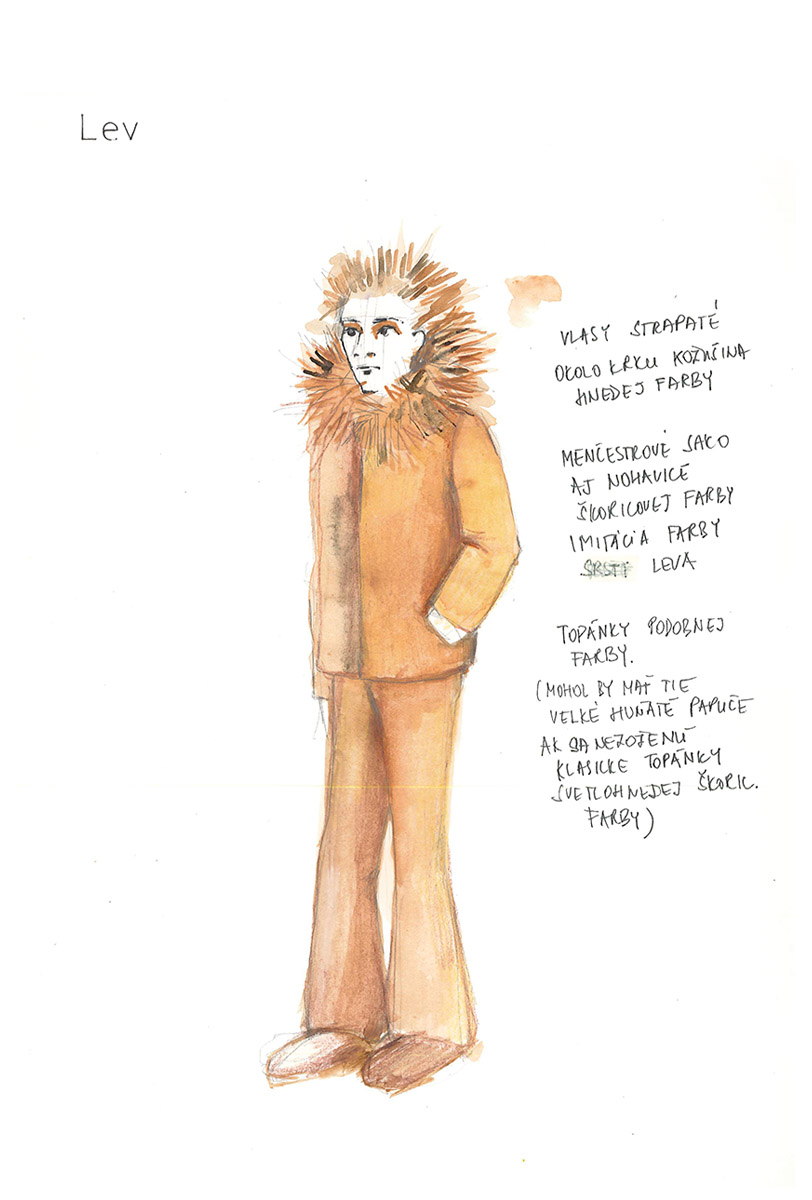 Lev
VLASY STRAPATÉ
OKOLO KRKU KOŽUŠINA
HNEDEJ FARBY
MENČESTROVÉ SAKO
AJ NOHAVICE
ŠKORICOVEJ FARBY
IMITÁCIA FARBY
SRSTI LEVA
TOPÁNKY PODOBNEJ
FARBY.
(MOHOL BY MAŤ TIE
VELKÉ HUŇATÉ PAPUČE
AK SA NEZOŽENÚ
KLASICKE TOPÁNKY
SVETLOHNEDEJ ŠKORIC.
FARBY)